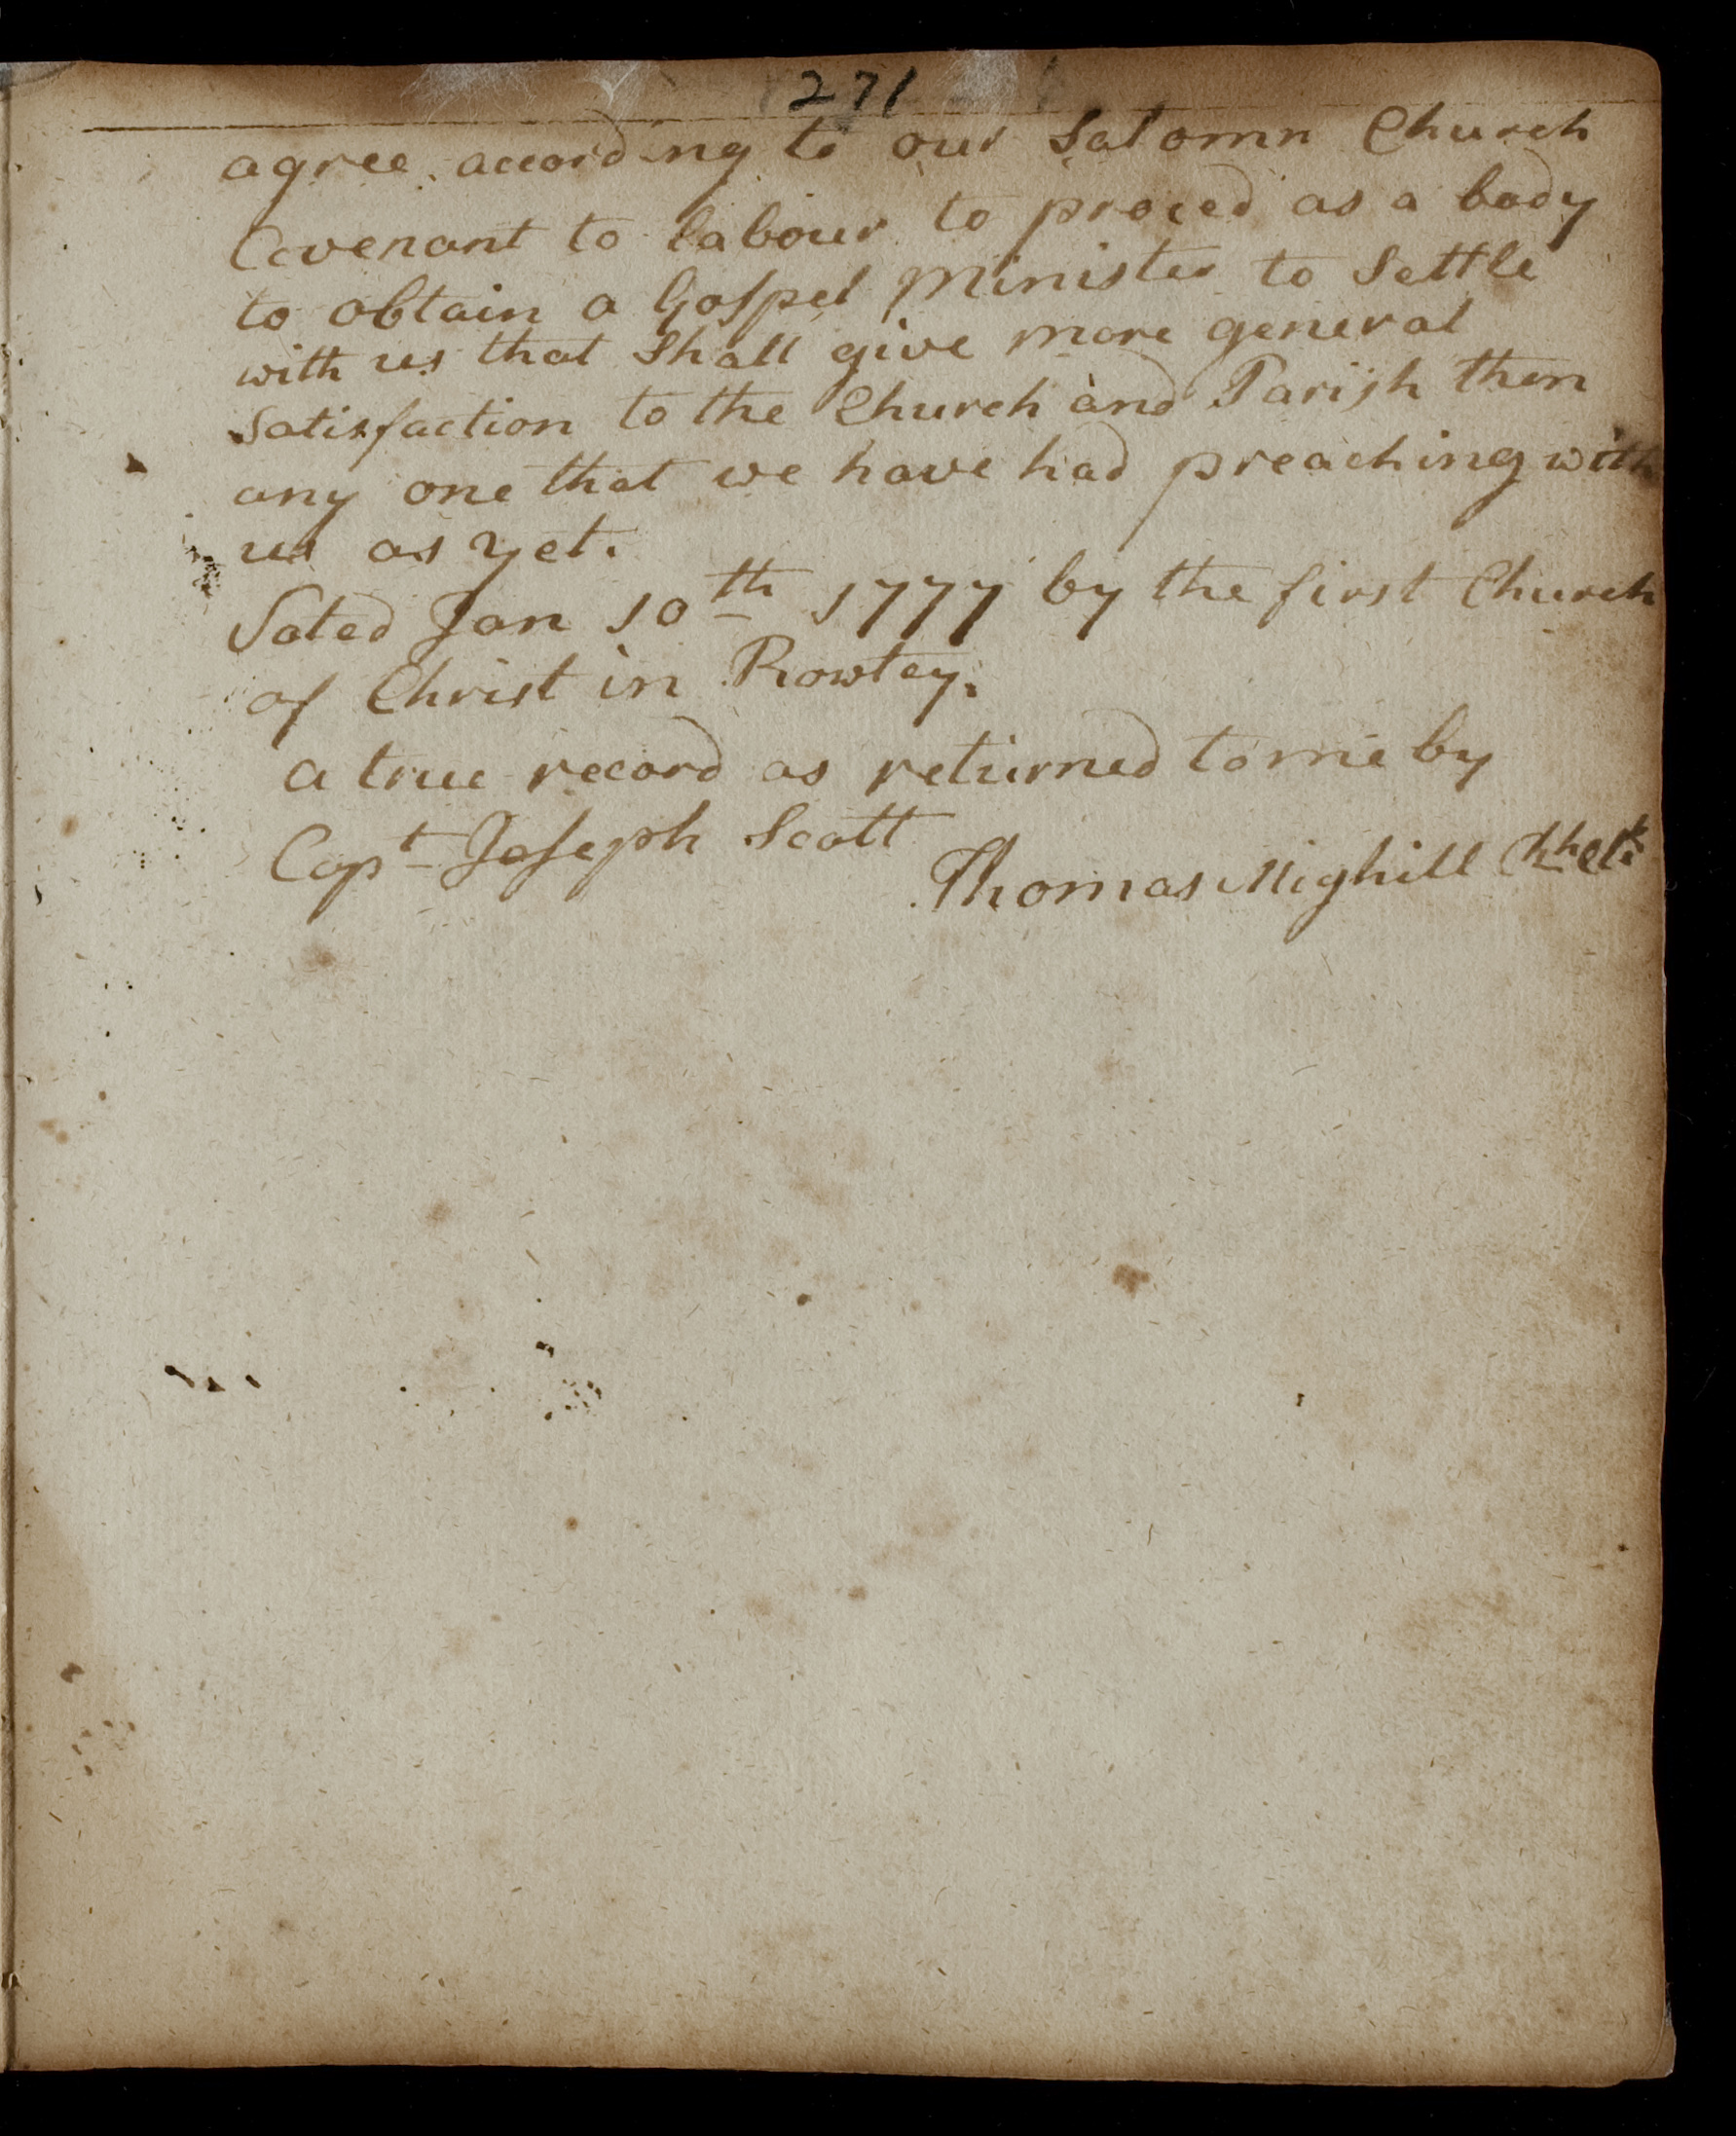 271
agree according to our Salomn Church
Covenant to labour to proced as a body
to obtain a Gospel Minister to Settle
with us that Shall give more general
Satisfaction to the Church and Parish then
any one that we have had preaching with
us as yet.
Voted Jan 10th 1777 by the first Church
of Christ in Rowley.
a true record as returned to me by
Capt Joseph Scott
Thomas Mighill